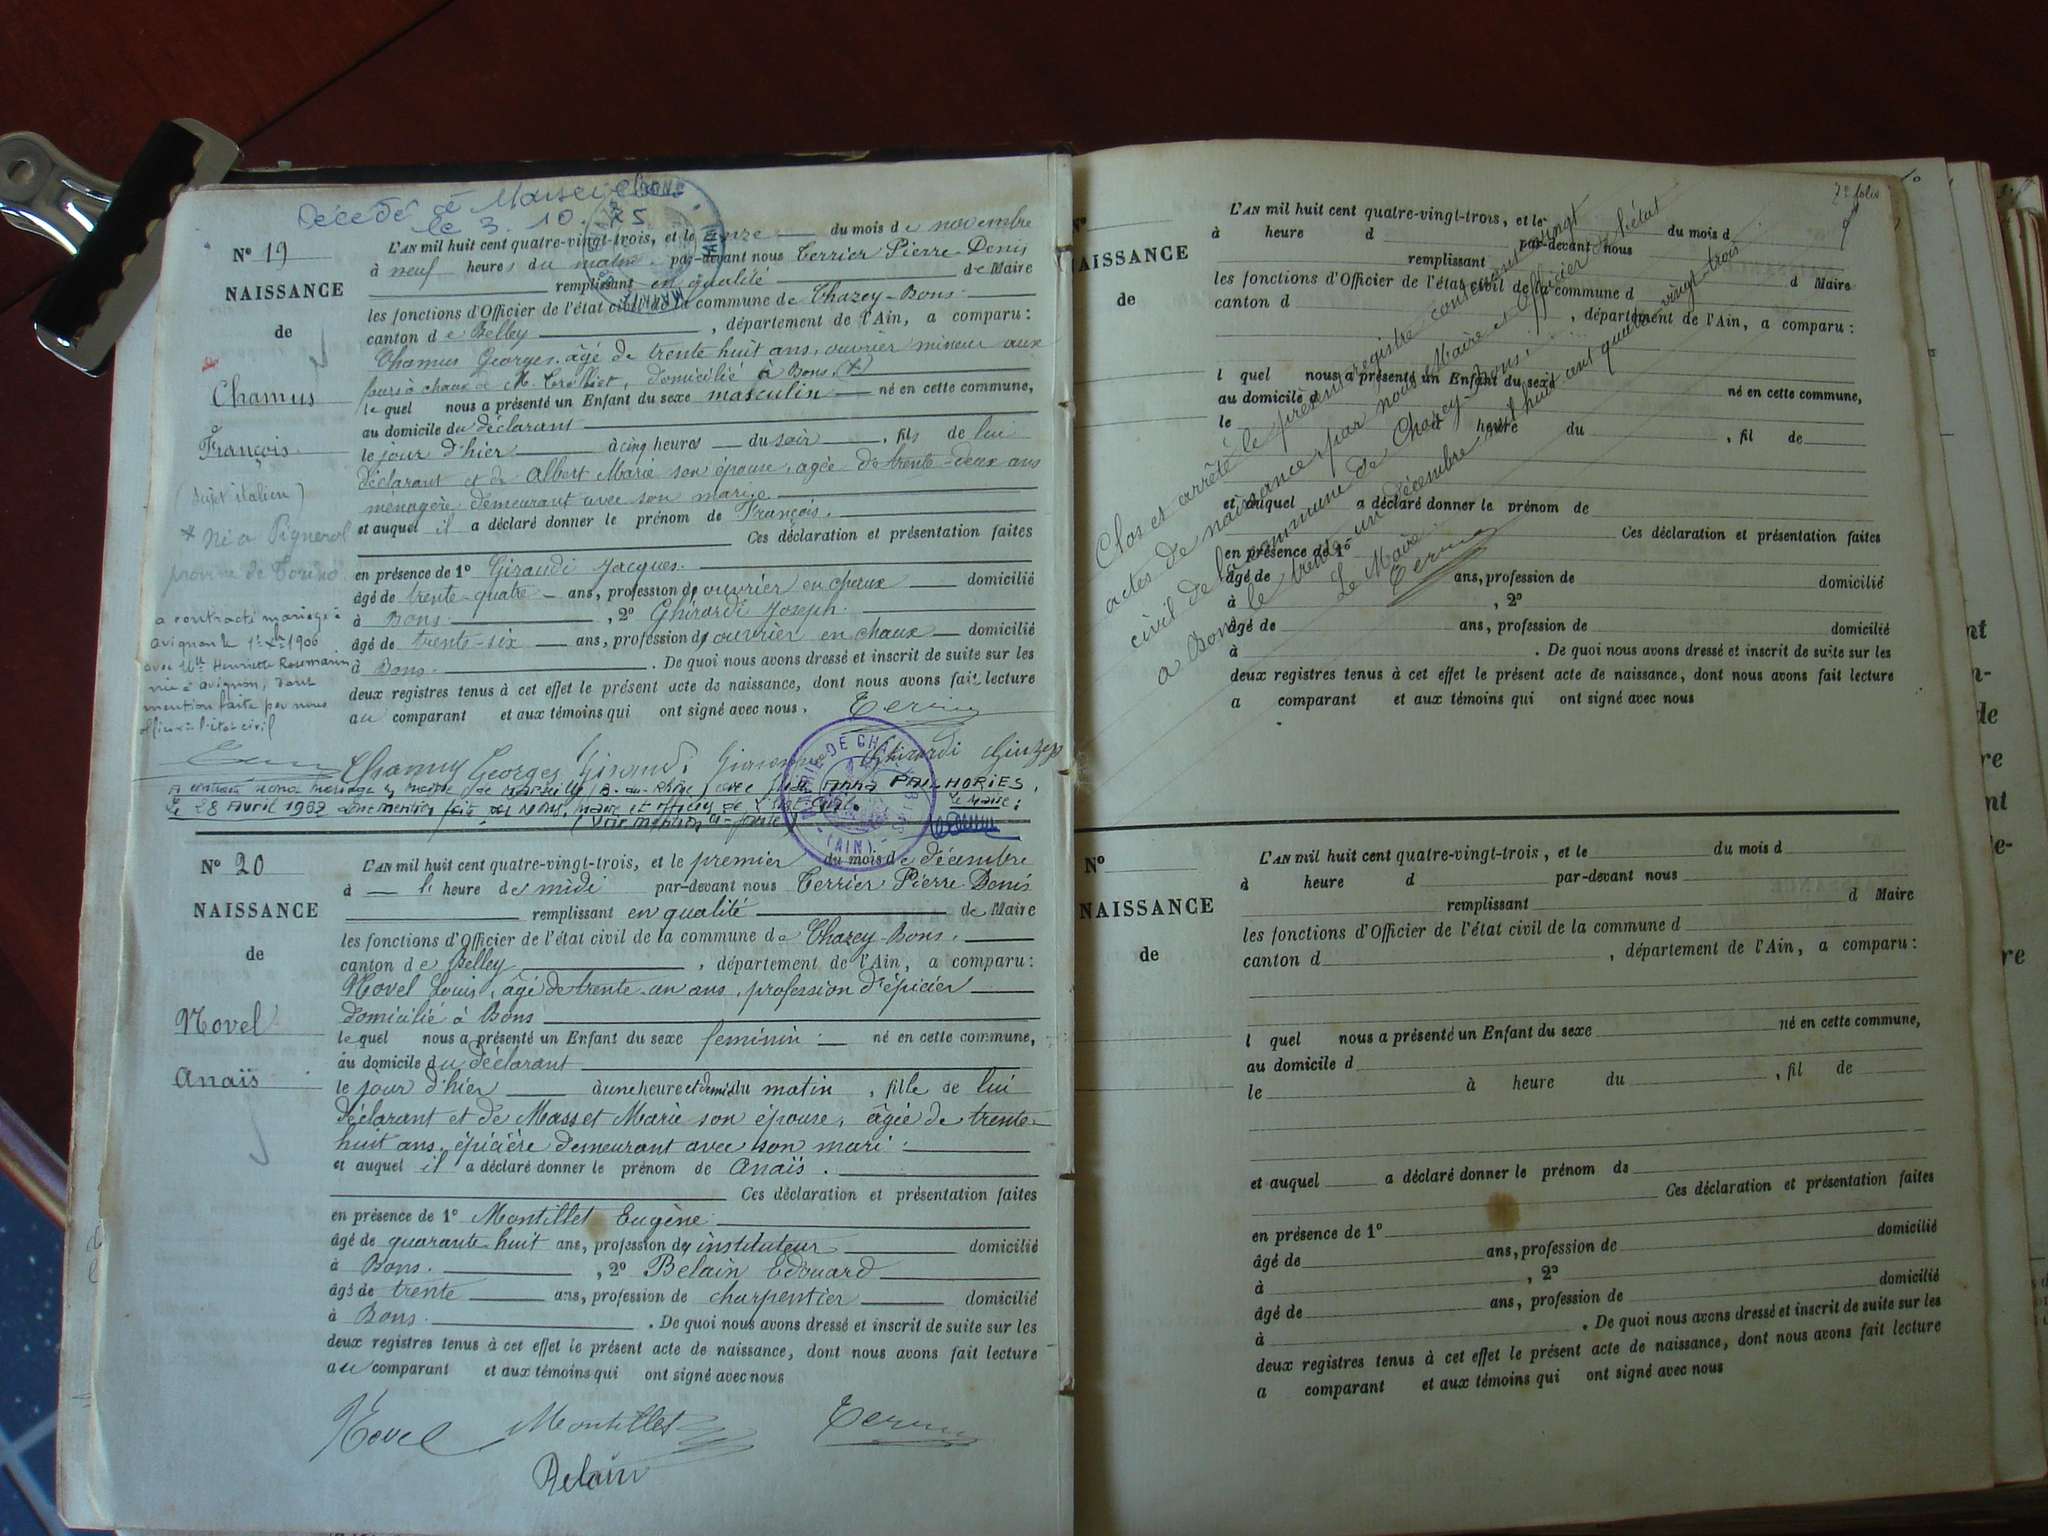 Décédé à Marseille
le 3. 10. 75
N° 19
NAISSANCE
de
Chamus
François
(sujet italien)
* Né à Pignerol
province de Torino
a contracté mariage à
avignon le 1er Xbre 1906
avec Melle Henriette Rosemarin
née à avignon, dont
mention faite par nous
officier de l'état civil
L'AN mil huit cent quatre-vingt-trois, et le onze du mois de novembre
à neuf heures du matin par-devant nous Terrier Pierre-Denis
remplissant en qualité de Maire
les fonctions d'Officier de l'état civil de la commune de Chazey-Bons
canton de Belley , département de l'Ain, a comparu :
Chamus Georges, âgé de trente huit ans, ouvrier mineur aux
fours à chaux de M. domicilié à Bons. (*)
le quel nous a présenté un Enfant du sexe masculin né en cette commune,
au domicile du déclarant
le jour d'hier à cinq heures du soir , fils de lui
déclarant et de Albert Marie son épouse, agée de trente-deux ans
ménagère demeurant avec son marie
et auquel il a déclaré donner le prénom de François.
Ces déclaration et présentation faites
en présence de 1° Giraudi Jacques.
âgé de trente-quatre ans, profession d'ouvrier en chaux domicilié
à Bons , 2° Ghirardi Joseph.
âgé de trente-six ans, profession d'ouvrier en chaux domicilié
à Bons. . De quoi nous avons dressé et inscrit de suite sur les
deux registres tenus à cet effet le présent acte de naissance, dont nous avons fait lecture
au comparant et aux témoins qui ont signé avec nous.
Chamus Georges Giraudi Ghirardi Giuzep
A contracté second mariage à mairie de Marseille B.-du-Rhône avec Anna PAILHORIES,
le 28 Avril 1967 dont mention faite par nous, Maire et officier de l'Etat-Civil. Le Maire :
(Voir mention ci-jointe)
MAIRIE DE CHAZEY-BONS (AIN)
N° 20
NAISSANCE
de
Novel
Anaïs
L'AN mil huit cent quatre-vingt-trois, et le premier du mois de décembre
à l' heure de midi par-devant nous Terrier Pierre-Denis
remplissant en qualité de Maire
les fonctions d'Officier de l'état civil de la commune de Chazey-Bons.
canton de Belley , département de l'Ain, a comparu :
Novel Louis, âgé de trente-un ans, profession d'épicier
domicilié à Bons
le quel nous a présenté un Enfant du sexe féminin né en cette commune,
au domicile du déclarant
le jour d'hier à une heure et demie du matin , fille de lui
déclarant et de Masset Marie son épouse, âgée de trente-
huit ans, épicière demeurant avec son mari
et auquel il a déclaré donner le prénom de Anaïs.
Ces déclaration et présentation faites
en présence de 1° Montillet Eugène
âgé de quarante-huit ans, profession d'instituteur domicilié
à Bons. , 2° Belain Edouard
âgé de trente ans, profession de charpentier domicilié
à Bons. . De quoi nous avons dressé et inscrit de suite sur les
deux registres tenus à cet effet le présent acte de naissance, dont nous avons fait lecture
au comparant et aux témoins qui ont signé avec nous
Novel Montillet
Belain
7e folio
N°
NAISSANCE
de
L'AN mil huit cent quatre-vingt-trois, et le du mois d
à heure d par-devant nous
remplissant d Maire
les fonctions d'Officier de l'état civil de la commune d
canton d , département de l'Ain, a comparu :
l quel nous a présenté un Enfant du sexe né en cette commune,
au domicile d
le à heure du , fil de
et auquel a déclaré donner le prénom de
Ces déclaration et présentation faites
en présence de 1°
âgé de ans, profession de domicilié
à , 2°
âgé de ans, profession de domicilié
à . De quoi nous avons dressé et inscrit de suite sur les
deux registres tenus à cet effet le présent acte de naissance, dont nous avons fait lecture
a comparant et aux témoins qui ont signé avec nous
Clos et arrêté le présent registre contenant vingt
actes de naissance, par nous Maire et Officier de l'état
civil de la commune de Chazey-Bons.
a Bons le trente-un décembre mil huit cent quatre vingt-trois
Le Maire
N°
NAISSANCE
de
L'AN mil huit cent quatre-vingt-trois, et le du mois d
à heure d par-devant nous
remplissant d Maire
les fonctions d'Officier de l'état civil de la commune d
canton d , département de l'Ain, a comparu :
l quel nous a présenté un Enfant du sexe né en cette commune,
au domicile d
le à heure du , fil de
et auquel a déclaré donner le prénom de
Ces déclaration et présentation faites
en présence de 1°
âgé de ans, profession de domicilié
à , 2°
âgé de ans, profession de domicilié
à . De quoi nous avons dressé et inscrit de suite sur les
deux registres tenus à cet effet le présent acte de naissance, dont nous avons fait lecture
a comparant et aux témoins qui ont signé avec nous